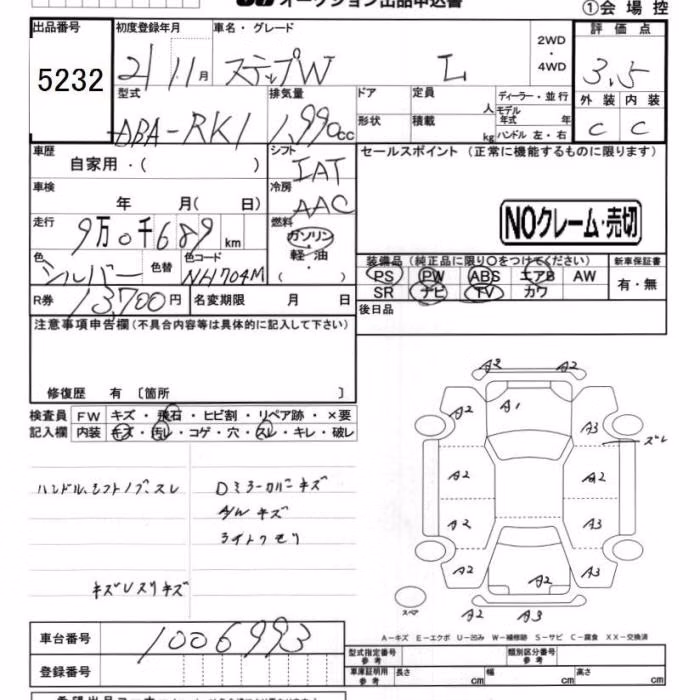 オークション出品申込書
①会場控
出品番号 初度登録年月 車名・グレード 2WD・4WD 評価点
5232 21 11月 ステップW L 3.5
型式 排気量 ドア 定員 人 ディーラー・並行 外装 内装
モデル年式 年
DBA-RK1 1,990cc 形状 積載 kg ハンドル 左・右 C C
車歴 シフト セールスポイント (正常に機能するものに限ります)
自家用・( ) IAT
車検 冷房
年 月( 日) AAC
NOクレーム・売切
走行 燃料
9万0千689km ガソリン・軽油・( )
色 シルバー 色替 色コード NH704M
装備品 (純正品に限り○をつけてください) 新車保証書
PS PW ABS エアB AW 有・無
SR ナビ TV カワ
R券 13,700円 名変期限 月 日
後日品
注意事項申告欄(不具合内容等は具体的に記入して下さい)
修復歴 有 〔箇所 〕
検査員 FW キズ・飛石・ヒビ割・リペア跡・×要
記入欄 内装 キズ・汚レ・コゲ・穴・スレ・キレ・破レ
A2 A2
A2 A1 A3
ズレ
A2 A2
ハンドル、シフトノブ、スレ Dミラーカバーキズ
A/W キズ
A2 A3
ライトクモリ
A2 A2 A3
キズUスリキズ
スペア A2 A3
A-キズ E-エクボ U-凹み W-補修跡 S-サビ C-腐食 XX-交換済
車台番号 1006993
型式指定番号 参考 類別区分番号 参考
登録番号 車庫証明用 参考 長さ cm 幅 cm 高さ cm